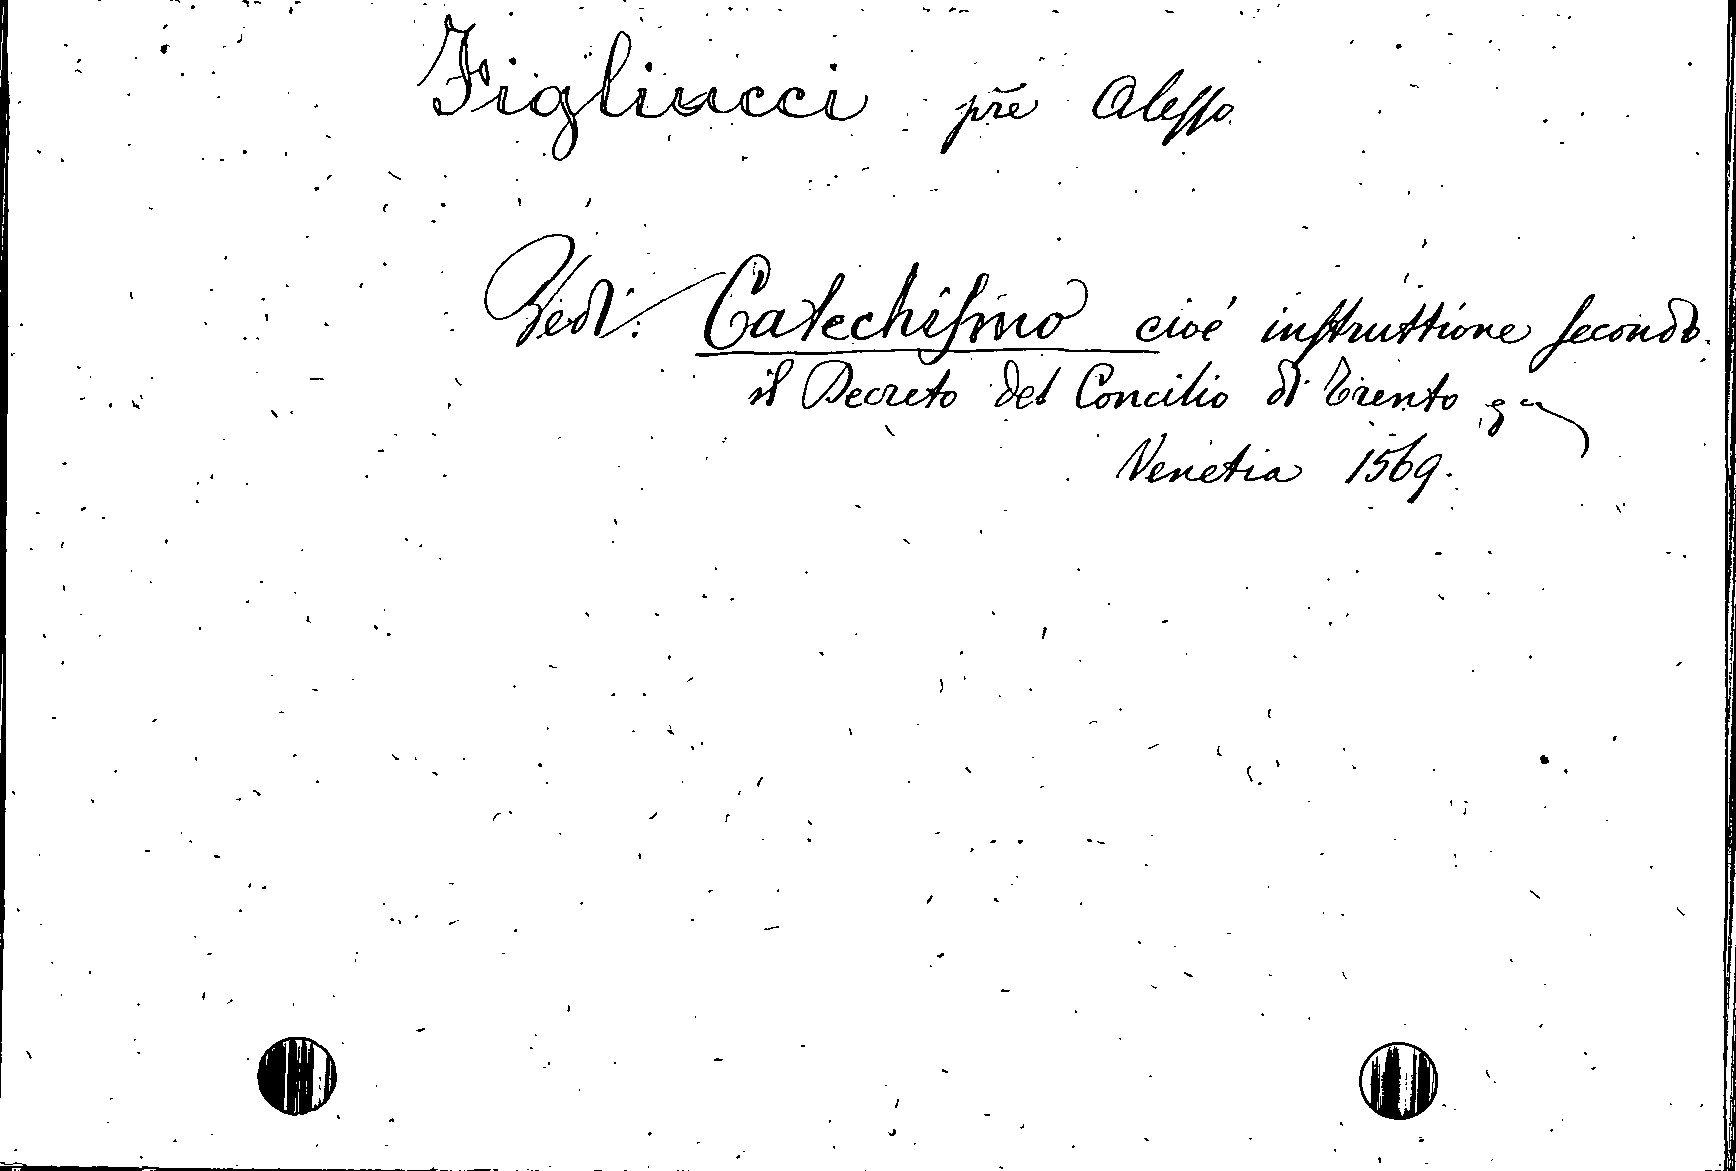 Figliucci pře Aleſſo.
Vedi: Catechiſmo cioé inſtruttione ſecondo
il Decreto del Concilio di Trento
Venetia 1569.